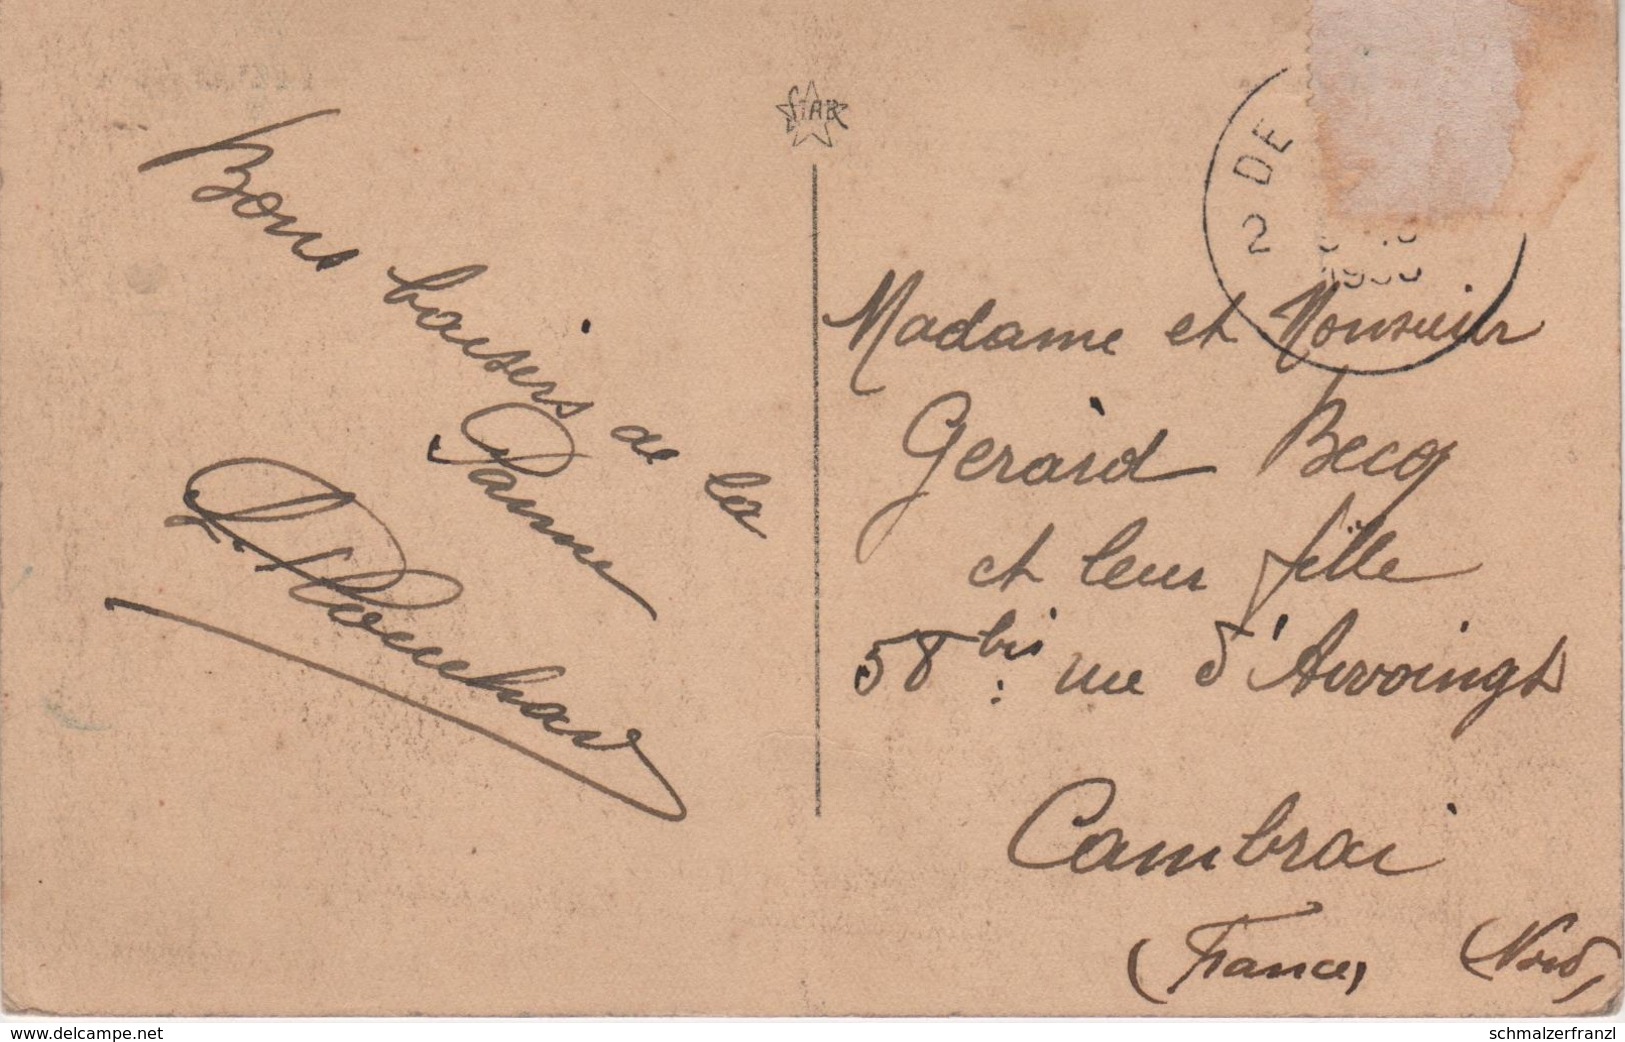 STAR
Bons baisers de la
Panne
DE
2
Madame et Monsieur
Gérard Becq
et leur fille
58 bis rue d'Awoingt
Cambrai
(France) (Nord)
www.delcampe.net
schmalzerfranzl